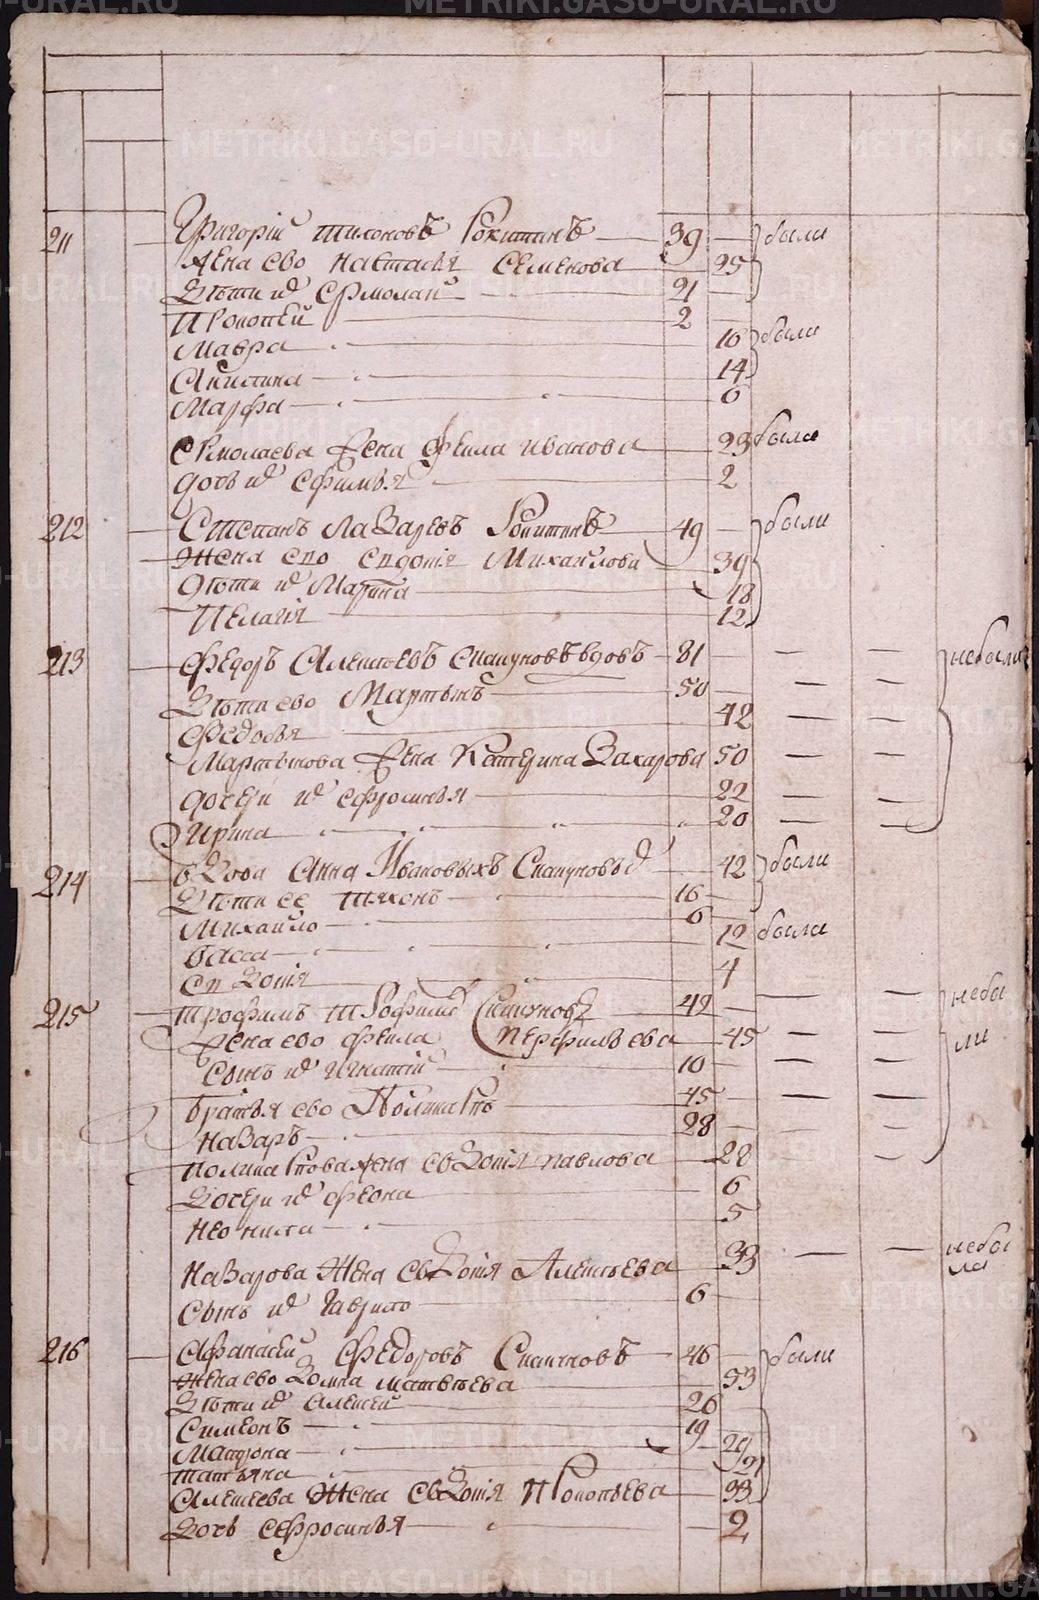 211 Григорій Тихоновъ Рокитинъ 39 были
Жена ево Настасья Семенова 25
Дѣти ихъ Ермолай 21
Прокопей 2
Мавра 16 были
Акилина 14
Марфа 6
Ермолаева жена Фекла Иванова 23 была
дочь ихъ Ефимья 2
212 Степанъ Лазаревъ Рокитинъ 49 были
Жена ево Евдотія Михайлова 39
Дѣти ихъ Марина 18
Пелагія 12
213 Федоръ Алексѣевъ Скакуновъ вдовъ 81 — — небыли
Дѣти ево Мартынъ 50 — —
Федосья 42 — —
Мартынова жена Катерина Захарова 50 — —
дочери ихъ Ефросинья 22 — —
Ирина 20 — —
214 вдова Анна Ивановыхъ Скакуновыхъ 42 были
Дѣти ее Тихонъ 16
Михайло 6
Васса 12 была
Евдотія 4
215 Трофимъ Скакуновъ 42 — — небы
жена ево Фекла Перфильева 45 — — ли
Сынъ ихъ Игнатій 10 — —
братья ево Поликарпъ 45 — —
Назаръ 28 — —
Поликарпова жена Евдотія Павлова 28 — —
Дочери ихъ Феона 6
Неонила 5
Назарова Жена Евдотія Алексѣева 33 — — небы
ла
Сынъ ихъ Гаврило 6
216 Афанасей Федоровъ Скакуновъ 46 были
Жена ево Домна Матвѣева 53
Дѣти ихъ Алексей 26
Симеонъ 19
Матрона 24
Татьяна 21
Алексеева Жена Евдотія Прокопьева 33
Дочь Ефросинья 2
METRIKI.GASO-URAL.RU